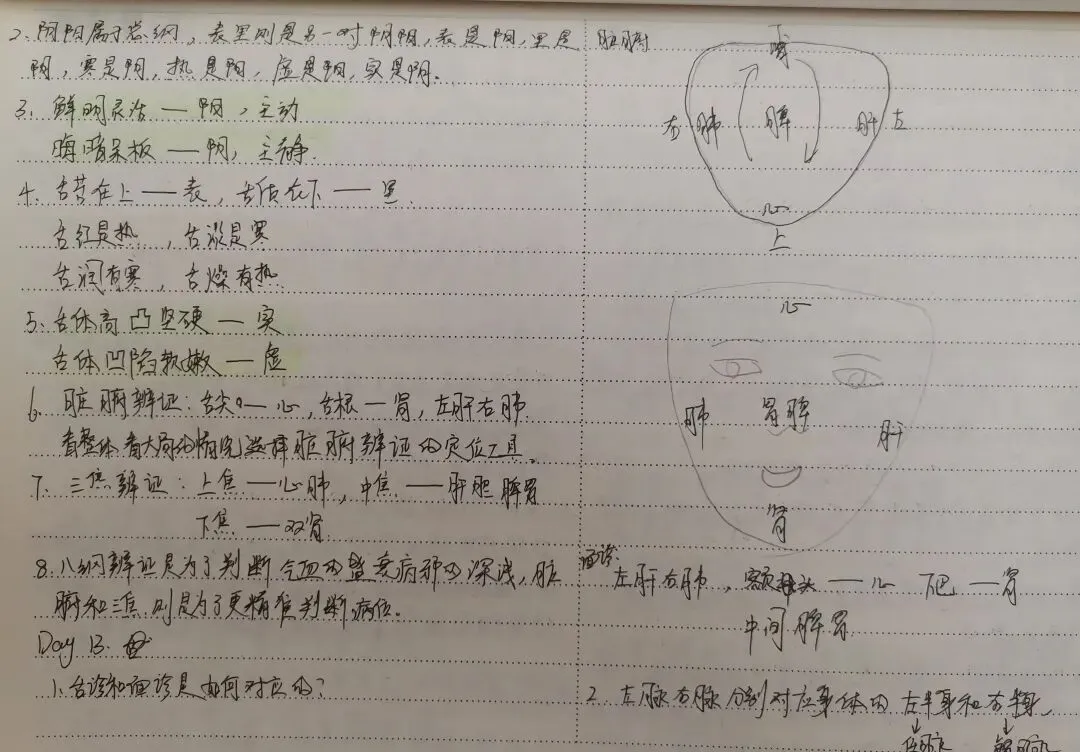 2、阴阳属于总纲，表里则是另一对阴阳，表是阳，里是
阴，寒是阴，热是阳，虚是阴，实是阳。
3、鲜明灵活 — 阳，主动
晦暗呆板 — 阴，主静.
4、舌苔在上 — 表，舌质在下 — 里.
舌红是热，舌淡是寒
舌润有寒，舌燥有热.
5、舌体高凸坚硬 — 实
舌体凹陷软嫩 — 虚
6、脏腑辨证：舌尖 — 心，舌根 — 肾，左肝右肺
看整体看大局的情况选择脏腑辨证的定位工具。
7、三焦辨证：上焦 — 心肺，中焦 — 肝胆脾胃
下焦 — 双肾
8、八纲辨证是为了判断气血的盛衰病邪的深浅，脏
腑和三焦则是为了更精准判断病位。
Day 13.
1、舌诊和面诊是如何对应的？
脏腑
肾
右 肺 脾 肝 左
心
上
心
肺 胃脾 肝
肾
面诊：
左肝右肺，额头 — 心 下巴 — 肾
中间脾胃
2、左脉右脉分别对应身体的左半身和右半身。